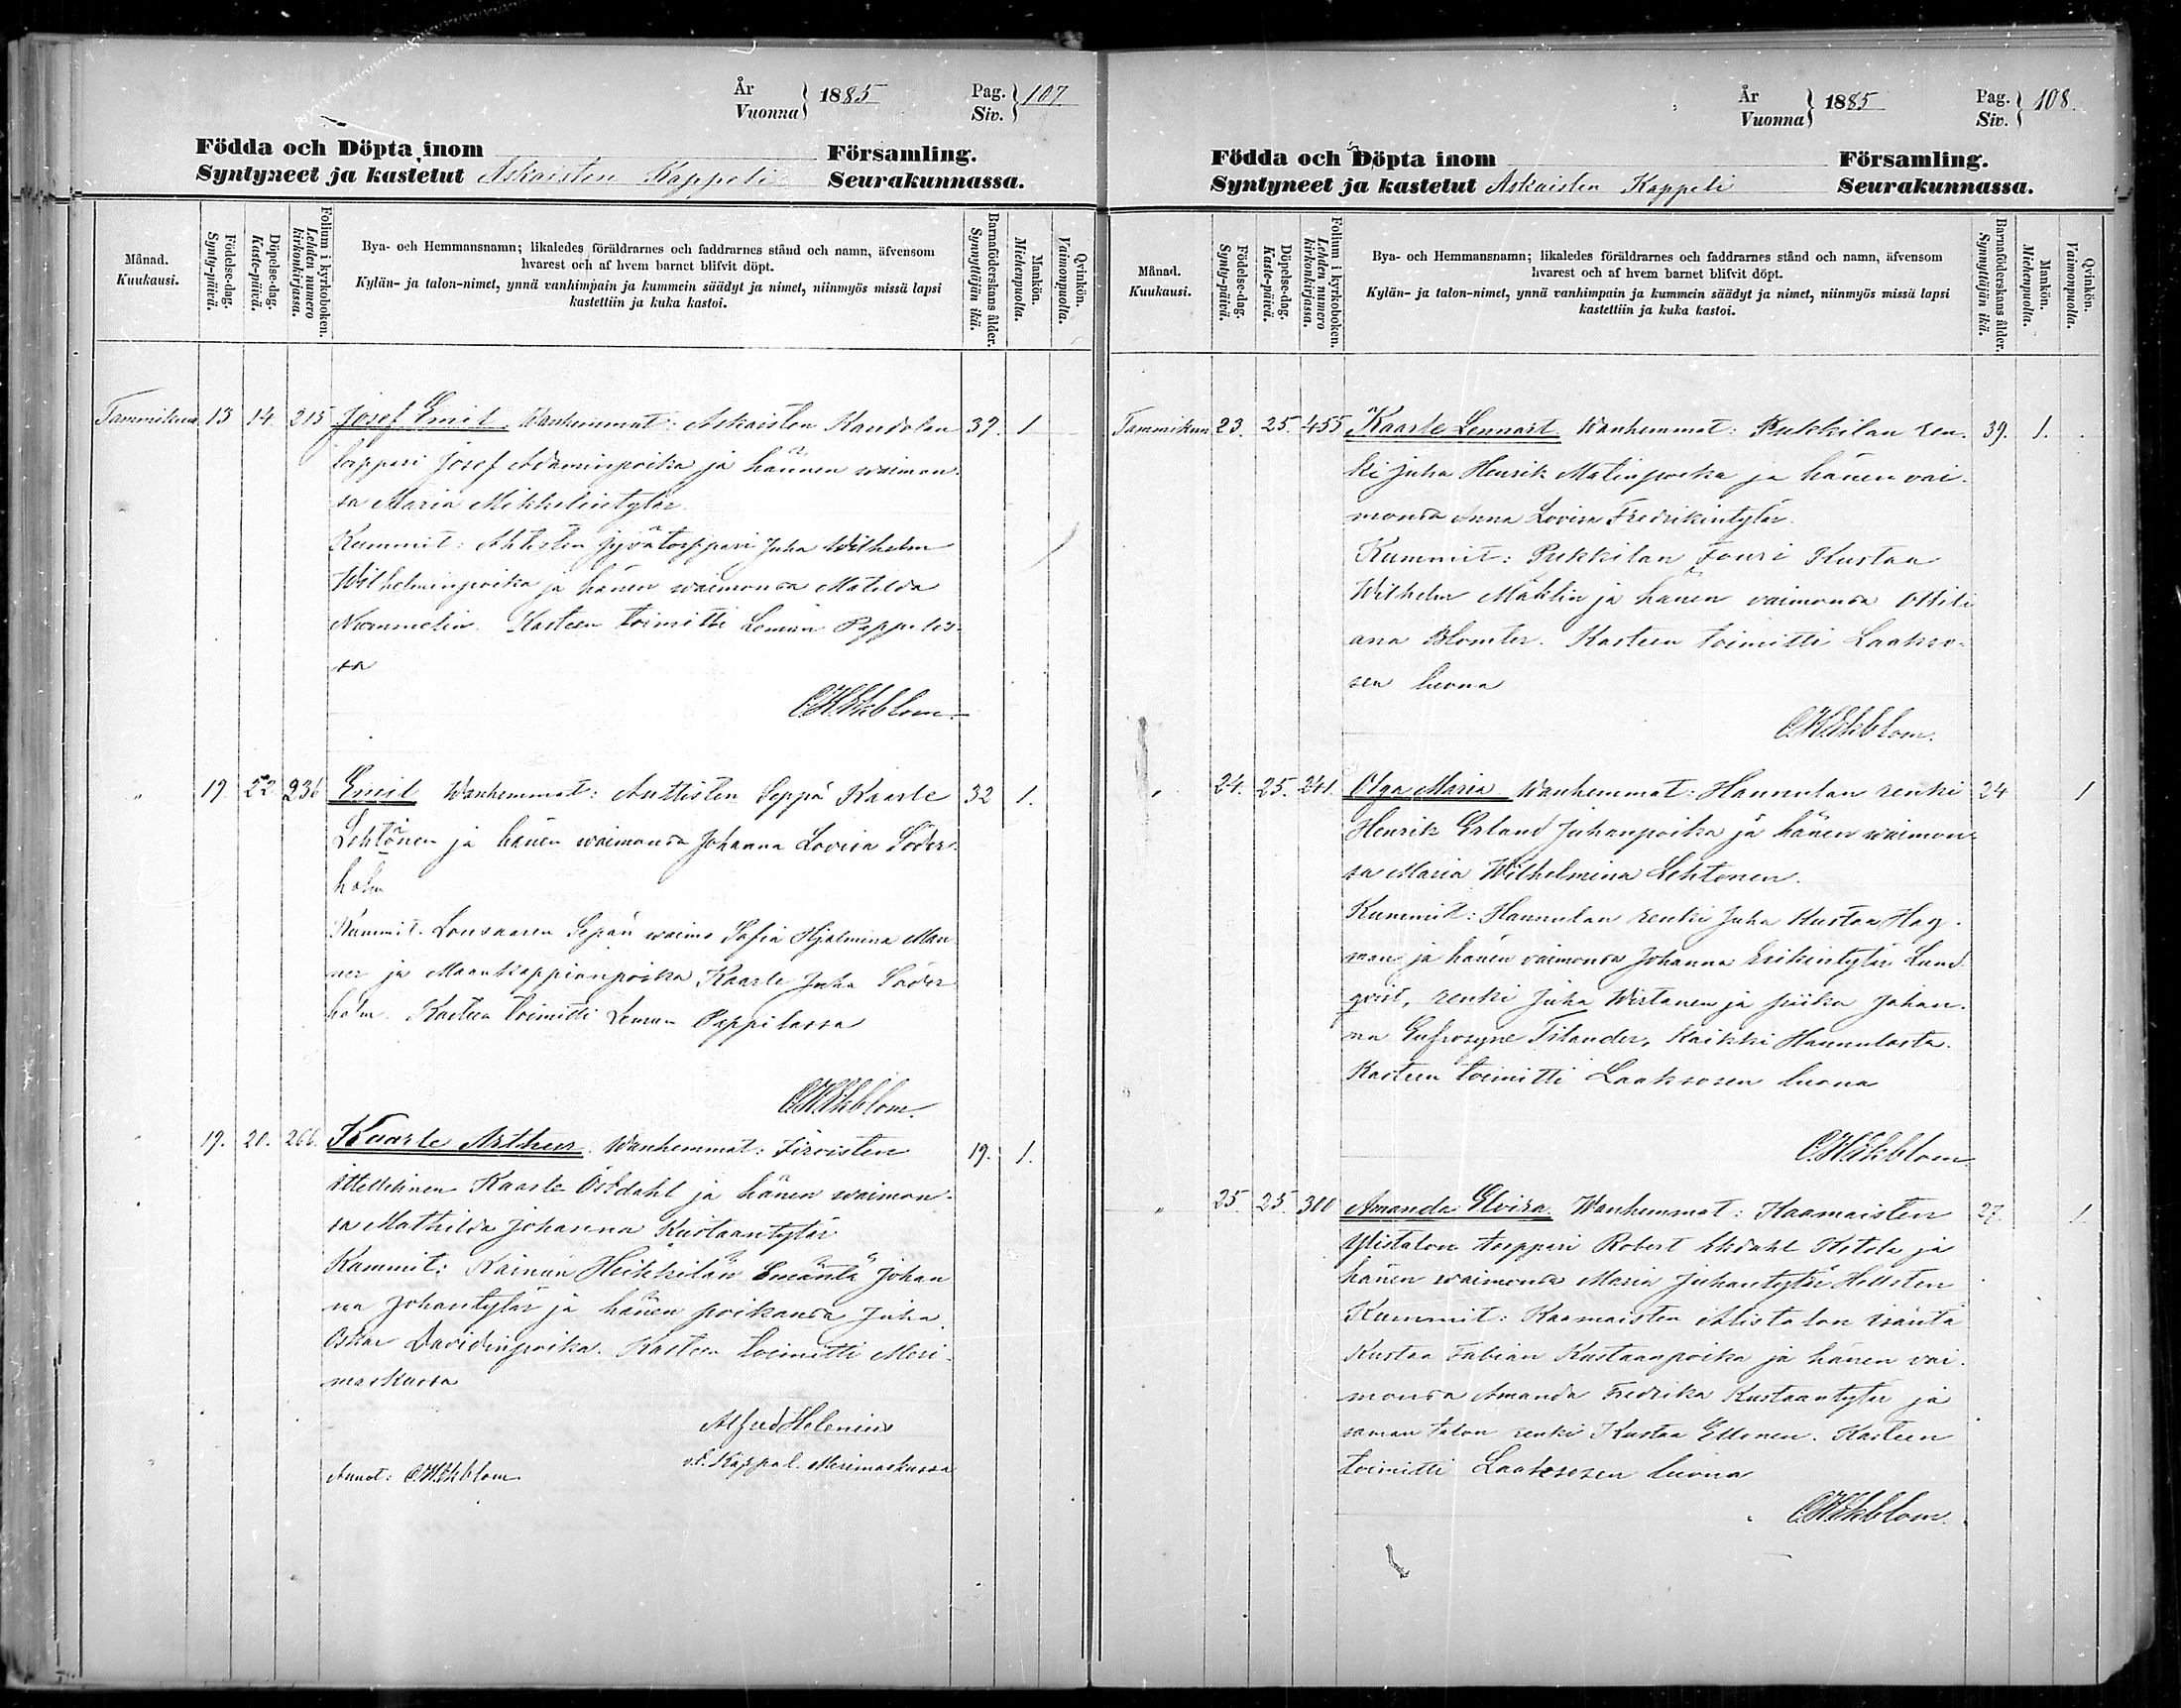 År
Vuonna } 1885
Pag.
Siv. } 107
Födda och Döpta inom Församling.
Syntyneet ja kastetut Askaisten Kappeli Seurakunnassa.
Månad.
Kuukausi.
Födelse-dag.
Synty-päivä.
Döpelse-dag.
Kaste-päivä.
Folium i kyrkoboken.
Lehden numero
kirkonkirjassa.
Bya- och Hemmansnamn; likaledes föräldrarnes och faddrarnes stånd och namn, äfvensom
hvarest och af hvem barnet blifvit döpt.
Kylän- ja talon-nimet, ynnä vanhimpain ja kummein säädyt ja nimet, niinmyös missä lapsi
kastettiin ja kuka kastoi.
Barnaföderskans ålder.
Synnyttäjän ikä.
Mankön.
Miehenpuolia.
Qvinkön.
Vaimonpuolia.
Tammikuu 13 14 215 Josef Emil. Wanhemmat: Askaisten 39. 1
torppari Josef Adaminpoika ja hänen waimon-
sa Maria Mikkelintytär.
Kummit: Ahtisten Juha Wilhelm
Wilhelminpoika ja hänen waimonsa Matilda
Nummelin. Kasteen toimitti Lemun Pappilas-
sa
C.H.Ekblom.
" 19 22 236 Emil Wanhemmat: Anttisten Seppä Kaarle 32 1.
Lehtonen ja hänen waimonsa Johanna Lovisa Söder-
holm
Kummit. Lousaaren Sepän waimo Sofia Hjalmina Man
ner ja Kaarle Juha Söder
holm. Kasteen toimitti Lemun Pappilassa
C.H.Ekblom.
" 19. 20. 266. Kaarle Arthur. Wanhemmat: 19. 1.
itsellinen Kaarle Östdahl ja hänen waimon-
sa Mathilda Johanna Kustaantytär
Kummit: Kairian Heikkilän Emäntä Johan
na Johantytär ja hänen poikansa Juha
Oskar Davidinpoika. Kasteen toimitti Meri-
maskussa
Alfred Helenius
v.t. Kappal. Merimaskussa
Annot: C.H.Ekblom
År
Vuonna } 1885
Pag.
Siv. } 108.
Födda och Döpta inom Församling.
Syntyneet ja kastetut Askaisten Kappeli Seurakunnassa.
Månad.
Kuukausi.
Födelse-dag.
Synty-päivä.
Döpelse-dag.
Kaste-päivä.
Folium i kyrkoboken.
Lehden numero
kirkonkirjassa.
Bya- och Hemmansnamn; likaledes föräldrarnes och faddrarnes stånd och namn, äfvensom
hvarest och af hvem barnet blifvit döpt.
Kylän- ja talon-nimet, ynnä vanhimpain ja kummein säädyt ja nimet, niinmyös missä lapsi
kastettiin ja kuka kastoi.
Barnaföderskans ålder.
Synnyttäjän ikä.
Mankön.
Miehenpuolia.
Qvinkön.
Vaimonpuolia.
Tammikuu 23. 25. 455 Kaarle Lennart Wanhemmat: Pukkilan ren- 39. 1.
ki Juha Henrik Matinpoika ja hänen vai-
monsa Anna Lovisa Fredrikintytär.
Kummit: Pukkilan Kustaa
Wilhelm Mäklin ja hänen vaimonsa Ottili
ana Blomter. Kasteen toimitti Laakso-
sen luona
C.H.Ekblom.
" 24. 25. 241. Olga Maria Wanhemmat: Hannulan renki 24 1
Henrik Erland Juhanpoika ja hänen waimon-
sa Maria Wilhelmina Lehtonen.
Kummit: Hannulan renki Juha Kustaa Hag-
man ja hänen vaimonsa Johanna Erikintytär Lund
qvist, renki Juha Wirtanen ja piika Johan-
na Eufrosyne Tilander, Kaikki Hannulasta.
Kasteen toimitti Laaksosen luona
C.H.Ekblom
" 25. 25. 300 Amanda Elvira. Wanhemmat: Kaamaisten 27. 1.
Ylistalon torppari Robert Ekdahl ja
hänen waimonsa Maria Juhantytär Hellsten
Kummit: Kaamaisten Alistalon isäntä
Kustaa Fabian Kustaanpoika ja hänen vai-
monsa Amanda Fredrika Kustaantytär ja
saman talon renki Kustaa Ellonen. Kasteen
toimitti Laaksosen luona
C.H.Ekblom.